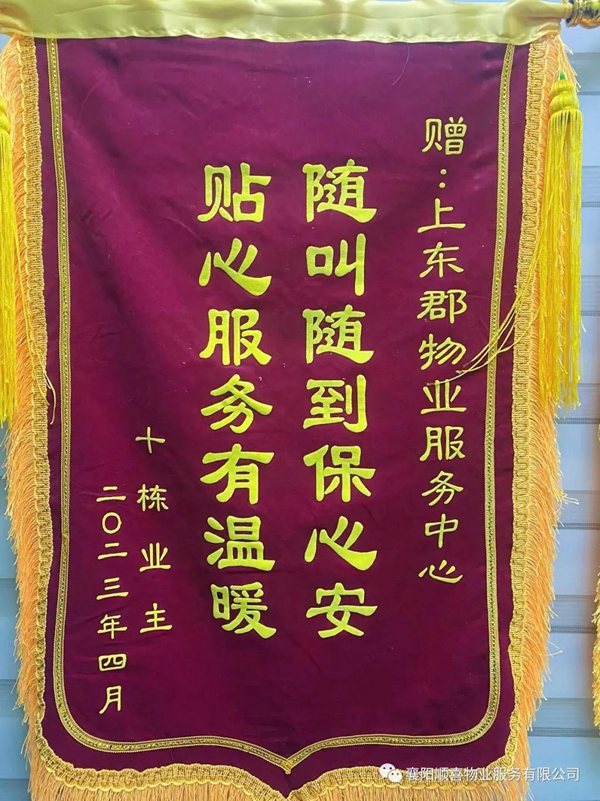 赠:上东郡物业服务中心
随叫随到保心安
贴心服务有温暖
十栋业主
二〇二三年四月
襄阳顺喜物业服务有限公司